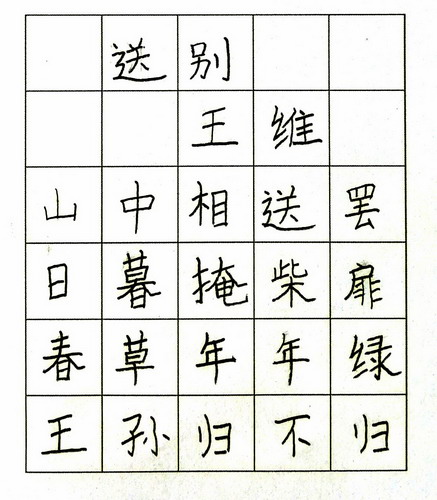 送别
王维
山中相送罢
日暮掩柴扉
春草年年绿
王孙归不归